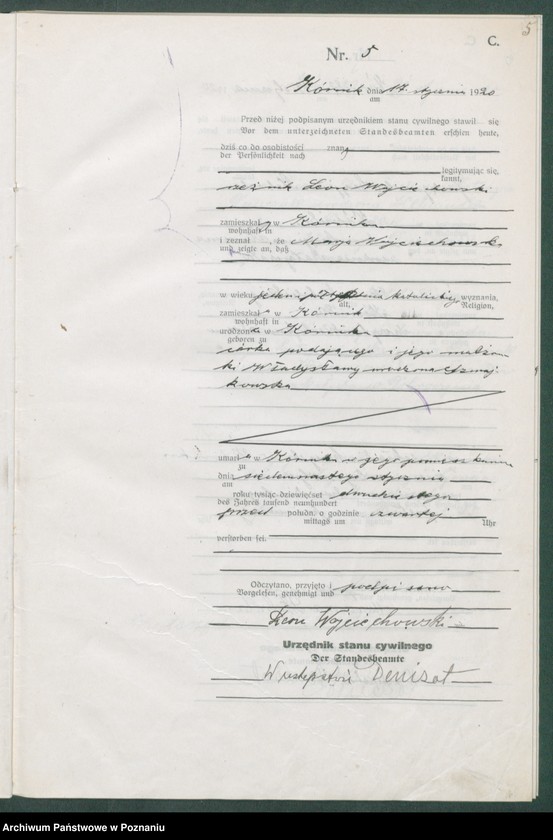 5
C.
Nr. 5
Kórnik dnia 17. stycznia 1920
am
Przed niżej podpisanym urzędnikiem stanu cywilnego stawił się
Vor dem unterzeichneten Standesbeamten erschien heute,
dziś co do osobistości znany
der Persönlichkeit nach
legitymując się,
kannt,
rzeźnik Leon Wojciechowski
zamieszkały w Kórniku
wohnhaft in
i zeznał, że Marya Wojciechowska
und zeigte an, daß
w wieku wyznania,
alt, Religion,
zamieszkała w Kórnik
wohnhaft in
urodzona w Kórniku
geboren zu
córka podającego i jego małżon
ki Władysławy urodzona Szmaj
kowska
umarła w Kórniku w jego pomieszkaniu
zu
dnia siedemnastego stycznia
am
roku tysiąc dziewięćset dwudziestego
des Jahres tausend neunhundert
przed połudn. o godzinie czwartej
mittags um Uhr
verstorben sei.
Odczytano, przyjęto i podpisano
Vorgelesen, genehmigt und
Leon Wojciechowski
Urzędnik stanu cywilnego
Der Standesbeamte
W zastępstwie Denizot
Archiwum Państwowe w Poznaniu